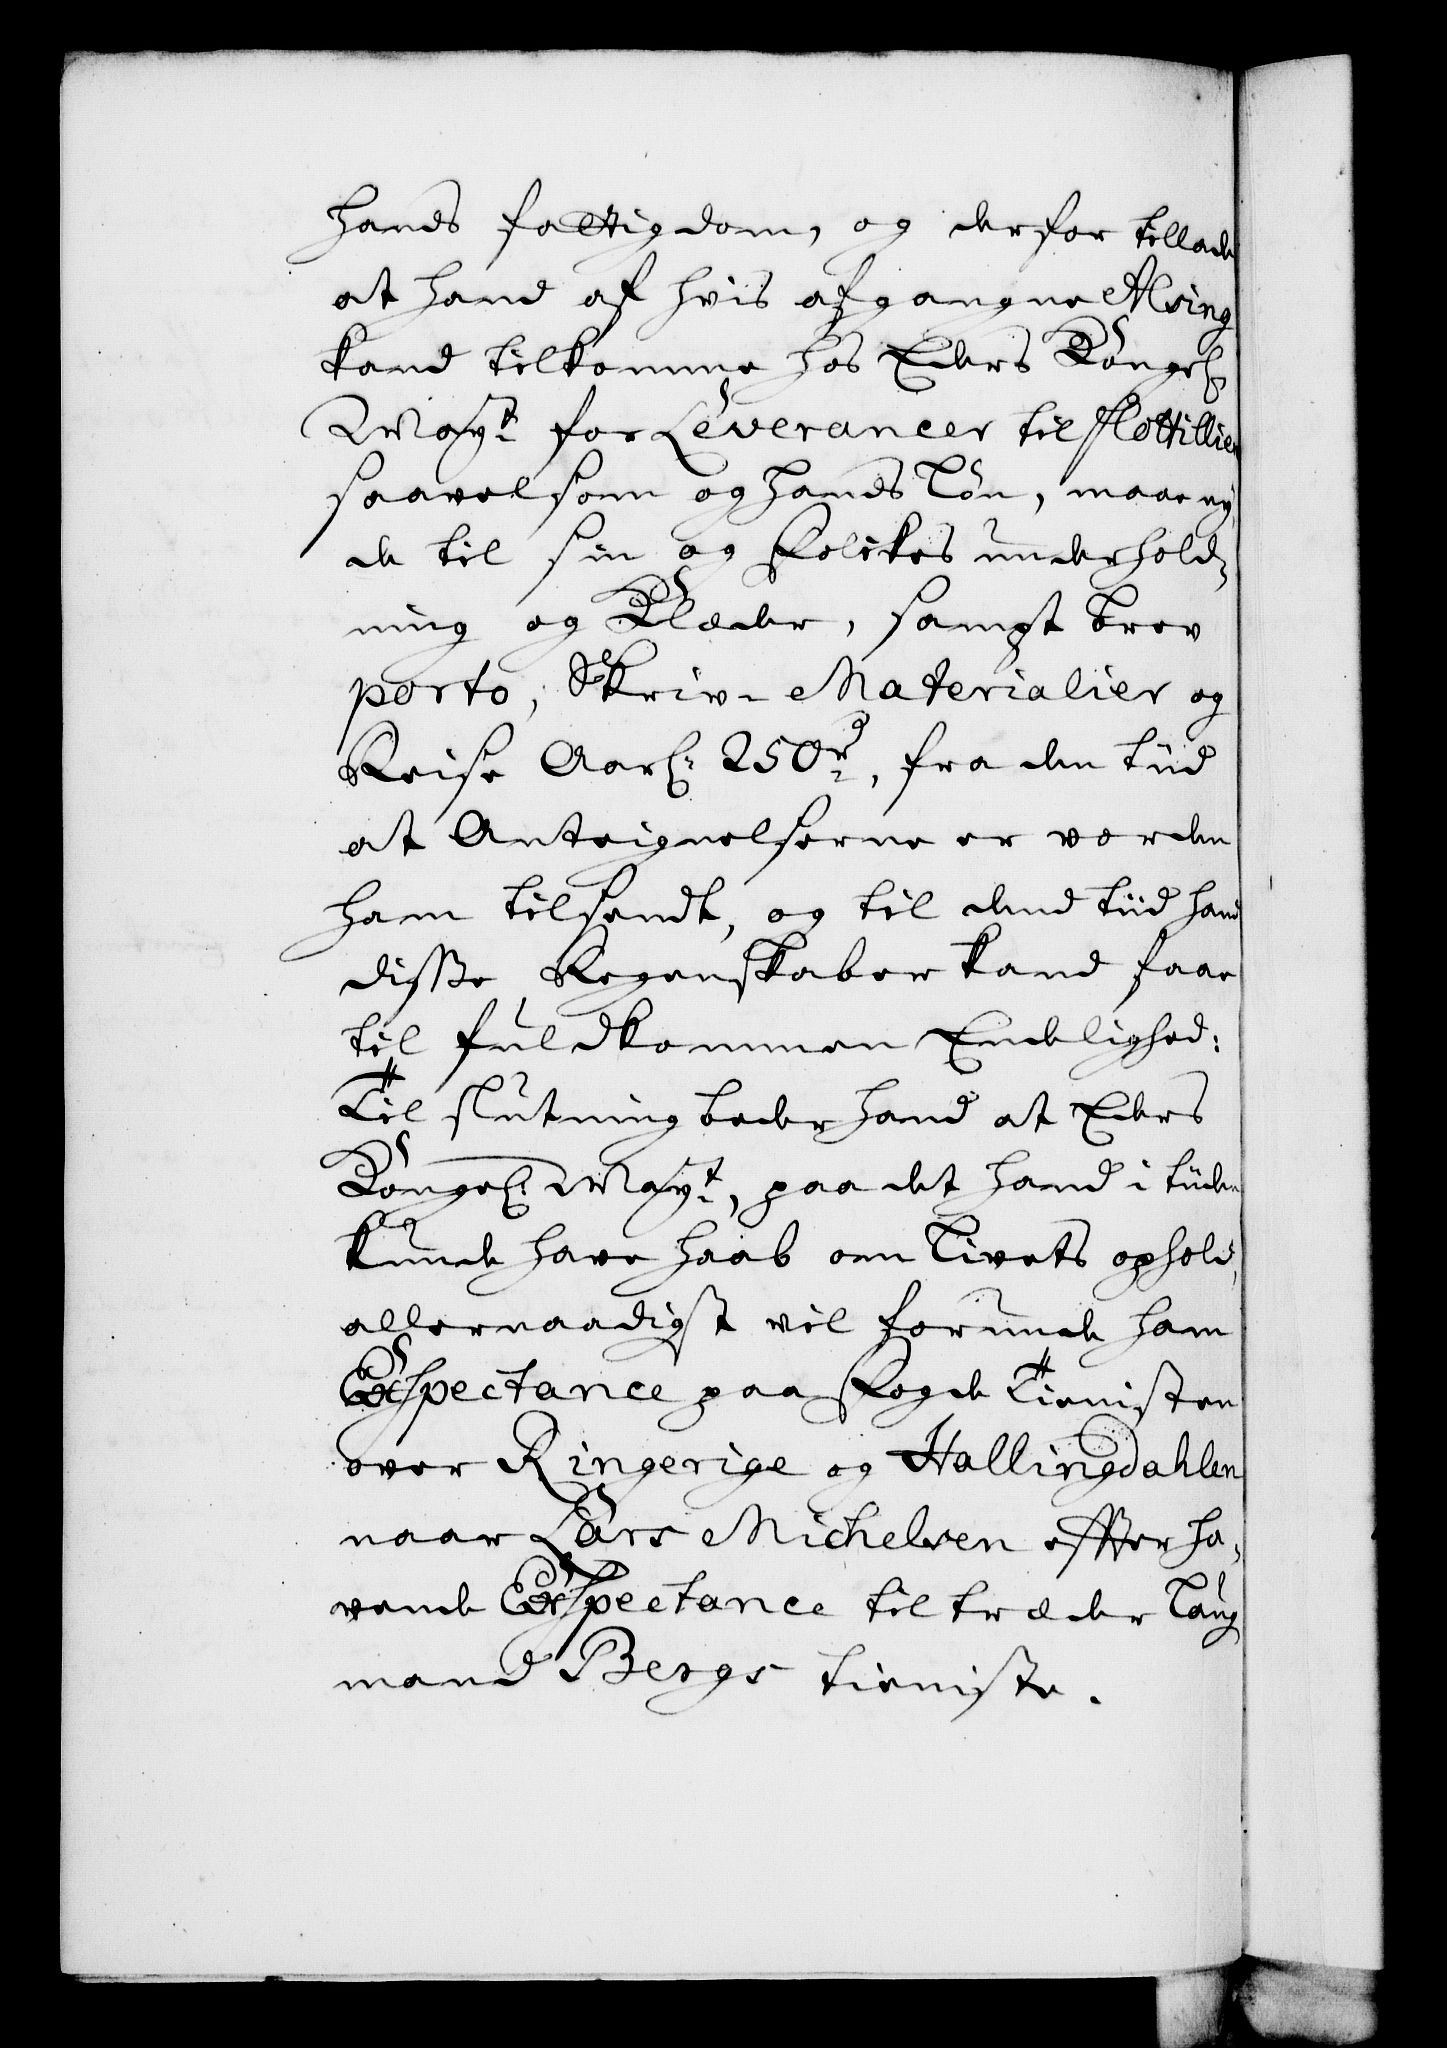 hands fattigdom, og derfor tillade
at hand af hvis afgangne Alsing
kand tilkomme hos Eders Kongel:
May:t for Leverancer til flottillien
saavelsom og hands Løn, maae ny
de til sin og Folckes underhold-
ning og Klæder, sampt brev
porto, Skriv-Materialier og
Reise Aarl: 250 rd:, fra den tiid
at Anteignelserne er vorden
ham tilsendt, og til dend tiid hand
disse Regenskaber kand faae
til fuldkommen Endelighed:
Til slutning beder hand at Eders
Kongel: May:t, paa det hand i tiiden
kunde have haab om Livets ophold,
allernaadigst vil forunde ham
Exspectance paa Fogde Tienisten
over Ringerige og Hallingdahlen
naar Lars Michelsen effter ha-
vende Exspectance tiltræder Laug
mand Bergs tieniste.